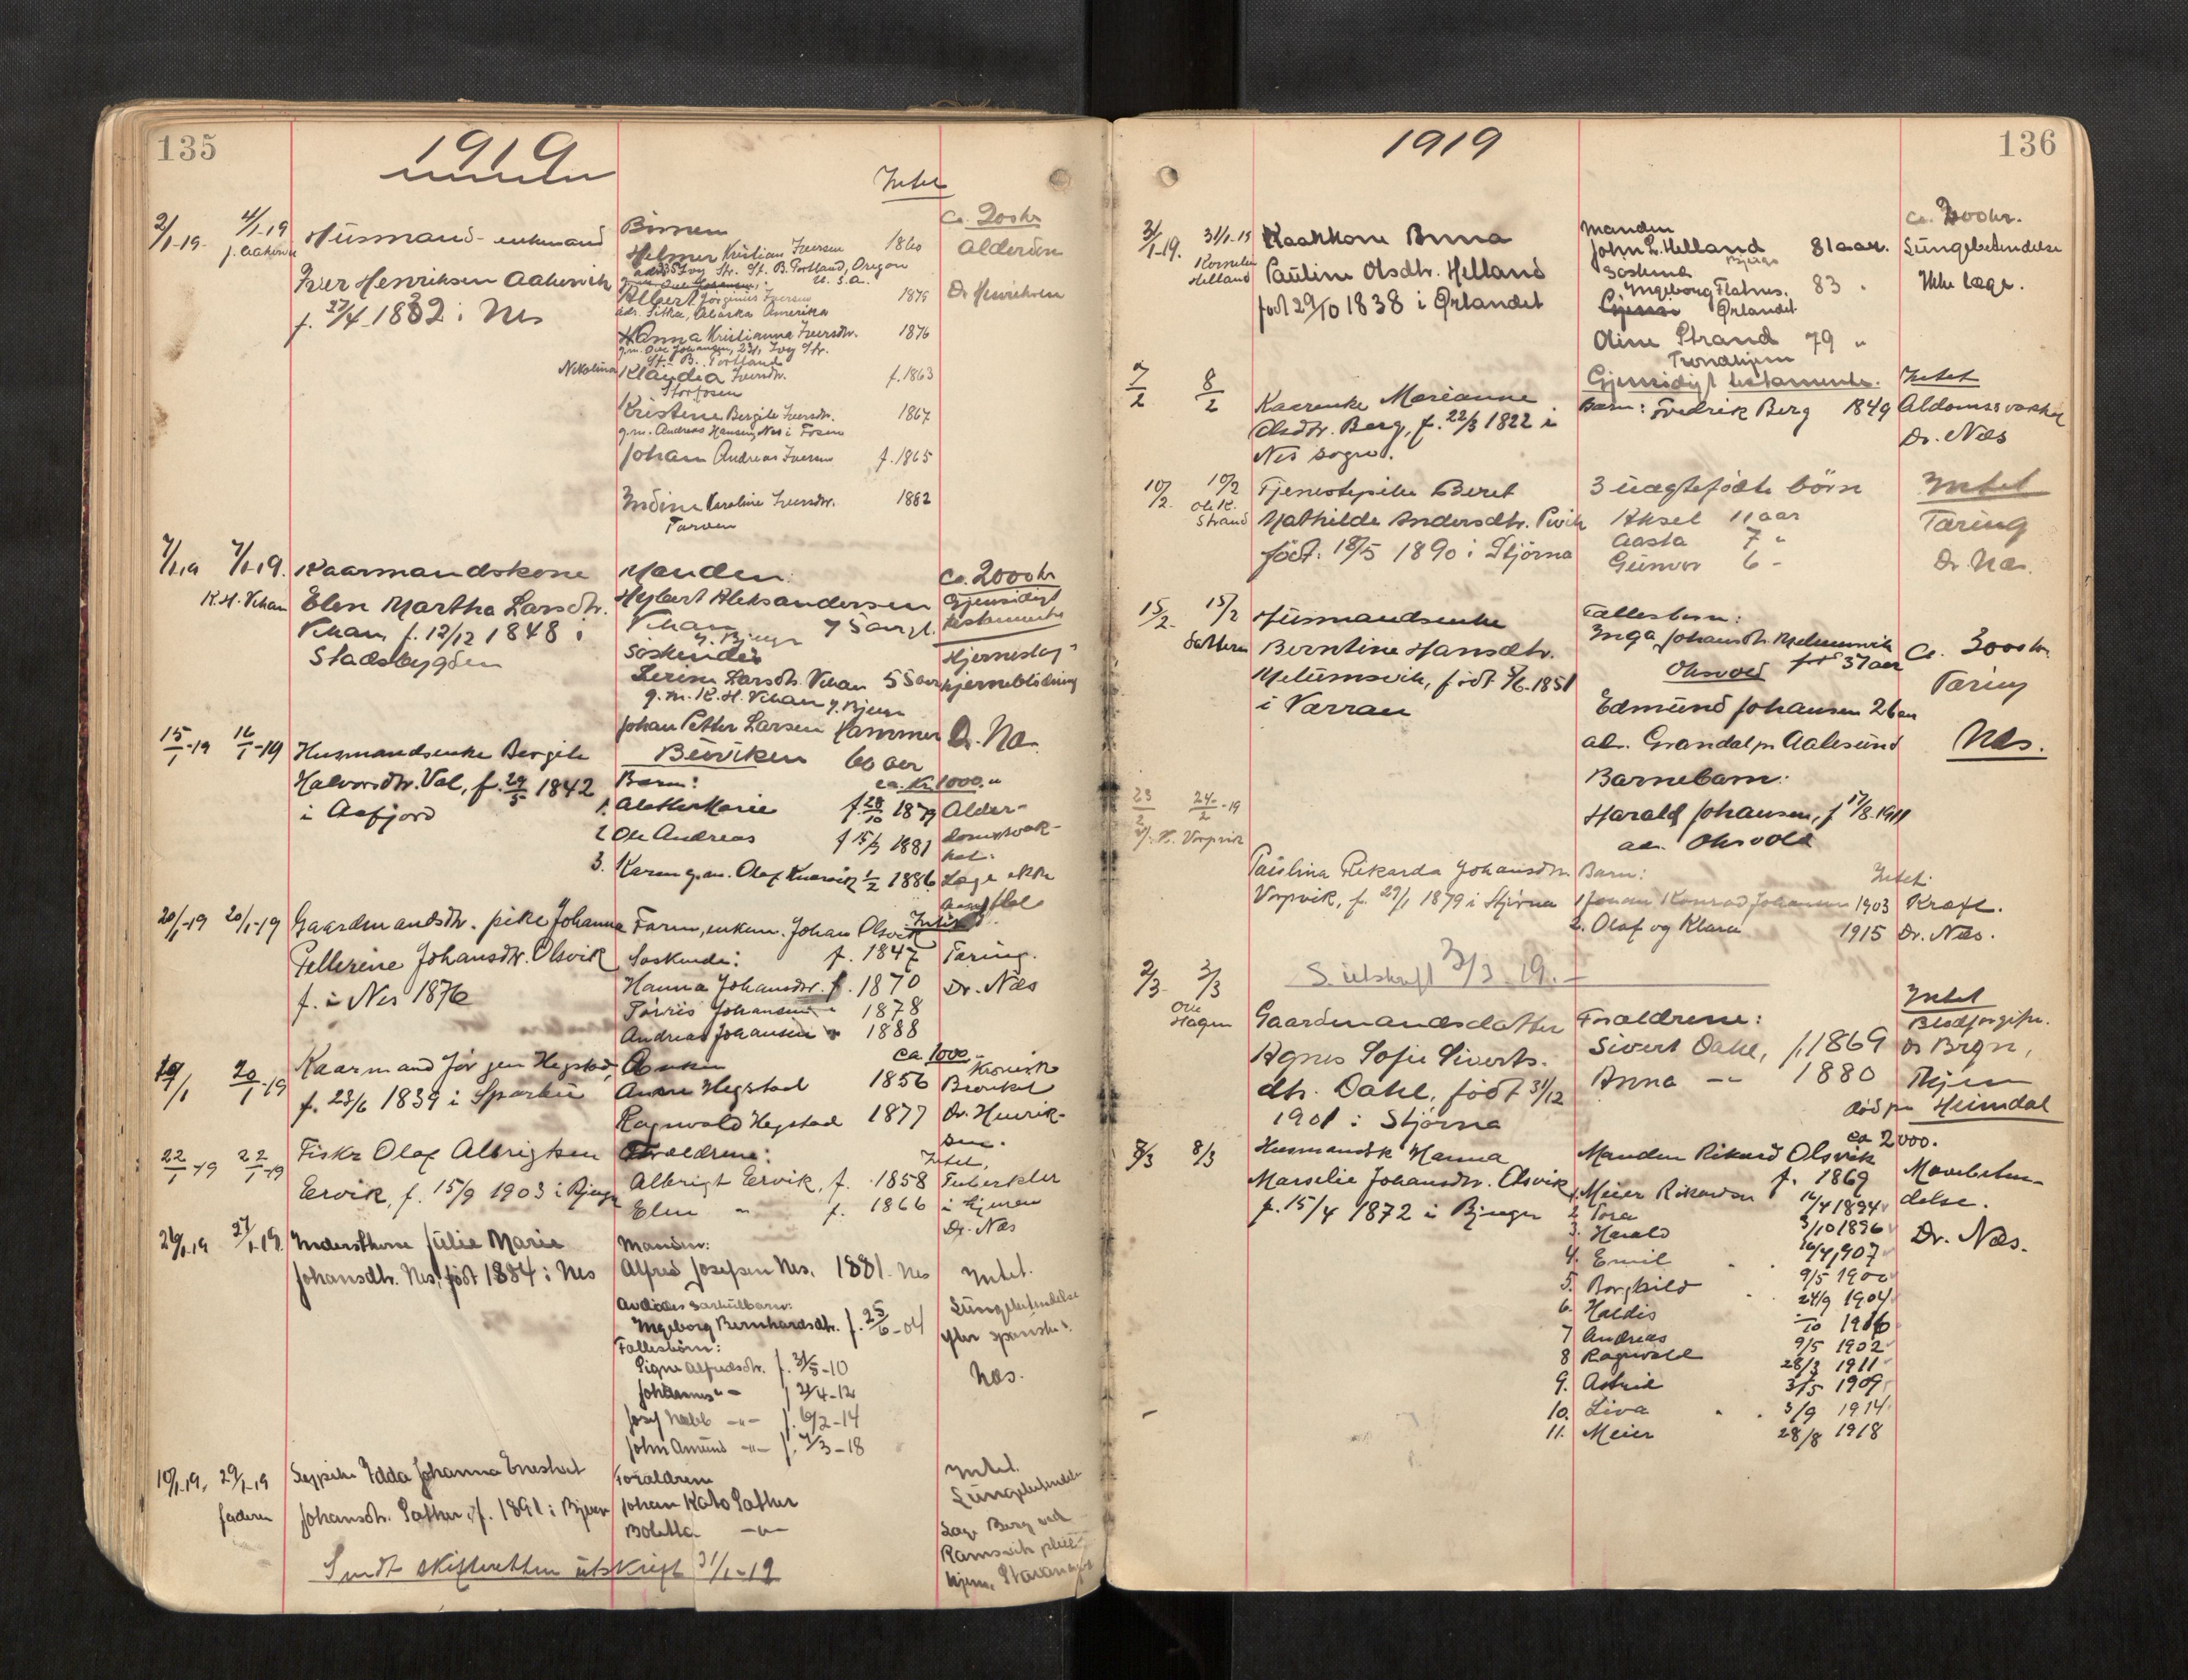 135
1919
Intet
2/1-19. 4/1-19 Husmand- enkemand Børnene ca. 200 kr
Helmer Kristian Iversen 1860 Alderdom
Str. St. B. Portland, Oregon
U. S. A.
Iver Henriksen Aakervik
Albert Jørginus Iversen 1875 Dr Henriksen
f. 27/4 1832 i Nes
adr. Sitka, Alaska Amerika
Hanna Kristianna Iversdtr. 1876
g.m. Ole Johansen, 231, Ivy Str.
St. B. Portland
Nikolina Klaudia Iversdtr. f. 1863
Storfosen
Kristine Bergite Iversdtr. 1867
g.m. Andreas Hansen, Nes i Fosen
Johan Andreas Iversen f. 1865
Indine Karoline Iversdtr. 1882
Tarven
7/1.19 7/1.19. Kaarmandskone Manden: ca. 2000 kr
K.H. Vehan Elen Martha Larsdtr. Hybert Aleksandersen Gjensidigt
Vehan, f. 12/12 1848 i Vehan 75 aar gl. testamente
y. Bjugn
Stadsbygden Søskende Hjerneslag
Larsdtr. Vehan 55 aar hjerneblødning
g.m. K. H. Vehan y. Bjugn
Johan Petter Larsen Hammer Dr. Næs
15/1-19 16/1-19 Husmandsenke Bergite 60 aar
Halvorsdtr. Val, f. 29/5 1842 Barn: ca. Kr 1000."
i Aafjord 1. Marie f. 28/10 1879 Alder-
2 Ole Andreas f 15/3 1881 domssvak-
het.
3. Karen g.m. Olaf 1/2 1886. Læge ikke
20/1-19 20/1-19 Gaardmandsdtr. pike Johanna Faren, enkem. Johan Olsvik Intet.
Pellerine Johansdtr. Olsvik Søskende: f. 1847 Tæring.
f. i Nes 1876 Hanna Johansdtr. f. 1870 Dr. Næs
Johansen " 1878
Andreas Johansen " 1888
19/1 20/1-19 Kaarmand Jørgen Hegstad, Enken ca 1000.-
f. 23/6 1839 i Sparbu Anne Hegstad 1856 Kronisk Bronkit
Ragnvald Hegstad 1877 Dr. Henrik-
sen.
22/1-19 22/1-19 Fisker Olaf Albrigtsen Forældrene: Intet,
Ervik, f. 15/9 1903 i Bjugn Albrigt Ervik, f. 1858 Tuberkler
Elen " f. 1866 i hjernen
Dr. Næs
26/1.19 27/1-19 Inderstkone Julie Marie Manden:
Johansdtr. Nes, født 1884 i Nes Alfred Josefsen Nes, 1881. Nes Intet.
Avdødes særkulbarn: Lungebetændelse
Ingeborg Bernhardsdtr. f. 25/6-04 efter spanske s.
Fællesbørn:
Signe Alfredsdtr. f. 31/5-10 Næs.
Johannes -"- f 21/4-12
Josef -"- f. 6/2-14
John Amund -"- f. 7/3-18
10/1.19, 29/1-19 Johanna Forældrene Intet.
faderen Johansdtr. Sæther, f. 1891 i Bjugn Johan Kato Sæther Lungebetændelse
Boletta -"- Læge Berg ved
Ramsvik pleie-
hjem, Stavanger
Sendt skifteretten utskrift 31/1-19
136
1919
3/1-19. 31/1-19 Kaarkone Anna Manden ca. 2000 kr.
Kornelius John L. Helland Bjugn 81 aar. Lungebetændelse
Helland Pauline Olsdtr. Helland Søskende
Ingeborg Flatnes. 83 " Ikke læge.
født 29/10 1838 i Ørlandet Ørlandet
Oline Strand 79 "
Trondhjem
7/2 8/2 Gjensidigt testamente. Intet
Kaarenke Marianne Barn: Fredrik Berg 1849 Aldomssvakhet
Olsdtr. Berg, f. 22/3 1822 i Dr. Næs
Nes sogn.
10/2. 10/2 Tjenestepike Beret 3 uægtefødte börn Intet
Ole K. Strand Mathilde Andersdtr. Aksel 11 aar Tæring
født. 18/5 1890 i Stjørna Aasta 7 "
Gunvor 6 - Dr. Næs.
15/2. 15/2 Husmandsenke Fællesbarn:
Datteren Berntine Hansdtr. Inga Johansdtr. Melumsvik ca. 3000 kr.
Melumsvik, født 5/6-1851 født 37 aar Tæring
i Værran Edmund Johansen 26 aar
ad. Grandal pr Aalesund Næs.
Barnebarn:
Harald Johansen, f 17/8-1911
23/2 24/2-19
Vorpvik
Paulina Rikarda Johansdtr. Barn: Intet.
Vorpvik, f. 29/1 1879 i Stjørna 1 Johan Konrad Johansen 1903 Kræft.
2. Olaf og Klara 1915 Dr. Næs.
S. utskrift 3/3 19. -
2/3 3/3 Intet
Ole Hagen Gaardmandsdatter Forældrene: Blodforgiftn.
Agnes Sofie Siverts- Sivert Dahl, f. 1869 Dr Bryn,
dtr. Dahl, født 31/12 Anna -"- 1880 Thjem
1901 i Stjørna død pr Heimdal
8/3 8/3 Husmandsk Hanna Manden Rikard Olsvik ca 2000.
Marselie Johansdtr. Olsvik f. 1869 Mavebetæn-
f. 15/4 1872 i Bjugn 1. Meier Rikardsen 16/4 1894 delse.
2 Tora 3/10 1896
3. Harald 16/4 1907 Dr. Næs.
4. Emil 9/5 1900
5. Borghild 24/9 1904
6. Haldis 10 1906
7 Andreas 9/5 1902
8 Ragnvald 28/3 1911
9. Astrid 3/5 1909
10. Liva 3/9 1914
11. Meier 28/8 1918